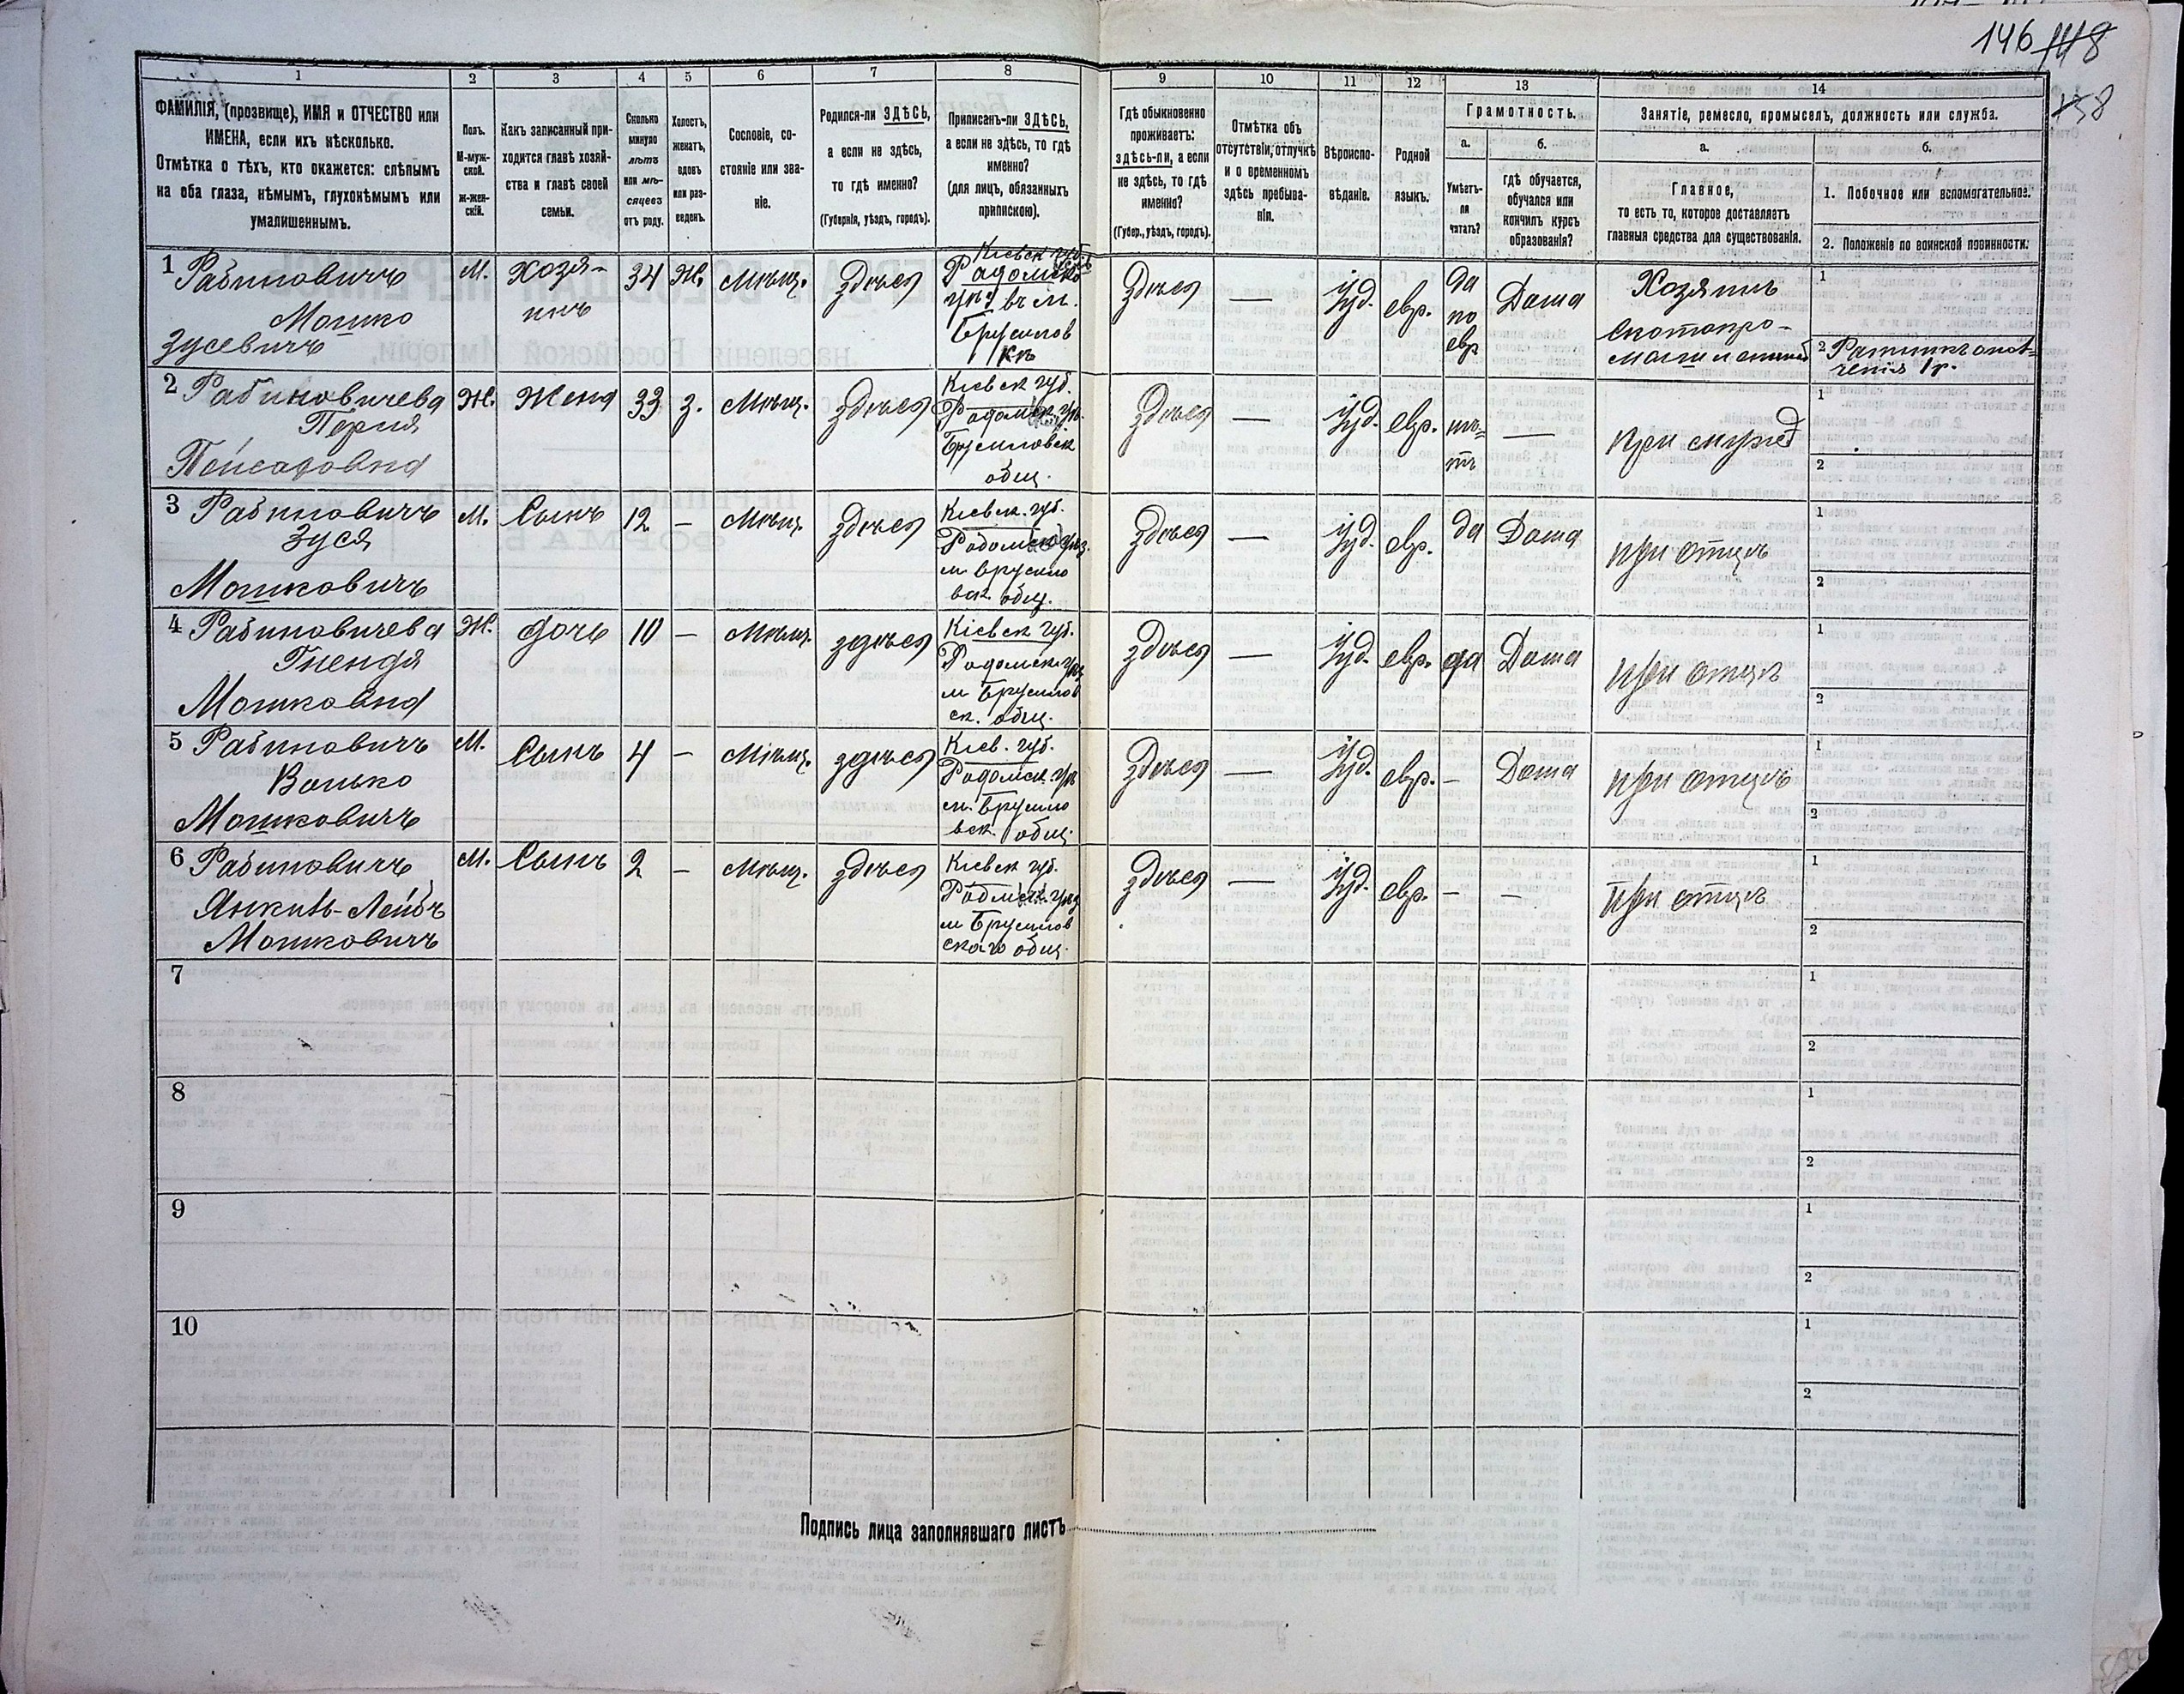 146 148
158
1 2 3 4 5 6 7 8 9 10 11 12 13 14
ФАМИЛІЯ, (прозвище), ИМЯ и ОТЧЕСТВО или
ИМЕНА, если ихъ нѣсколько.
Отмѣтка о тѣхъ, кто окажется: слѣпымъ
на оба глаза, нѣмымъ, глухонѣмымъ или
умалишеннымъ.
Полъ.
М-муж-
ской.
ж-жен-
скій.
Какъ записанный при-
ходится главѣ хозяй-
ства и главѣ своей
семьи.
Сколько
минуло
лѣтъ
или мѣ-
сяцевъ
отъ роду.
Холостъ,
женатъ,
вдовъ
или раз-
веденъ.
Сословіе, со-
стояніе или зва-
ніе.
Родился-ли ЗДѢСЬ,
а если не здѣсь,
то гдѣ именно?
(Губернія, уѣздъ, городъ).
Приписанъ-ли ЗДѢСЬ,
а если не здѣсь, то гдѣ
именно?
(для лицъ, обязанныхъ
припискою).
Гдѣ обыкновенно
проживаетъ:
здѣсь-ли, а если
не здѣсь, то гдѣ
именно?
(Губер., уѣздъ, городъ).
Отмѣтка объ
отсутствіи, отлучкѣ
и о временномъ
здѣсь пребыва-
ніи.
Вѣроиспо-
вѣданіе.
Родной
языкъ.
Грамотность.
а.
Умѣетъ-
ли
читать?
б.
гдѣ обучается,
обучался или
кончилъ курсъ
образованія?
Занятіе, ремесло, промыселъ, должность или служба.
а.
Главное,
то есть то, которое доставляетъ
главныя средства для существованія.
б.
1. Побочное или вспомогательное.
2. Положеніе по воинской повинности.
1 Рабиновичъ
Мошко
Зусевичъ
М.
Хозя-
инъ
34
Ж.
Мѣщ.
Здѣся
Кіевск губ.
Радомыс
Брусилов
Здѣся
—
Іуд.
евр.
да
по
евр
Дома
Хозяинъ
1
2 Ратникъ опол-
ченія 1 р.
2 Рабиновичева
Перля
Ж.
Жена
33
З.
Мѣщ.
Здѣся
Кіевск губ.
Брусиловск
общ.
Здѣся
—
Іуд.
евр.
нѣ-
тъ
—
при мужѣ
1
2
3 Рабиновичъ
Зуся
Мошковичъ
М.
Сынъ
12
—
Мѣщ.
Здѣся
Кіевск. губ.
м. Брусило
вск. общ.
Здѣся
—
Іуд.
евр.
да
Дома
при отцѣ
1
2
4 Рабиновичева
Гнендя
Мошковна
Ж.
дочь
10
—
Мѣщ.
здѣся
Кіевск губ.
Радомск. уѣз
м Брусилов
ск. общ.
Здѣся
—
Іуд.
евр.
да
Дома
при отцѣ
1
2
5 Рабиновичъ
Волько
Мошковичъ
М.
Сынъ
4
—
Мѣщ.
здѣся
Кіев. губ.
Радомск. уѣз
м. Брусило
вск. общ.
Здѣся
—
Іуд.
евр.
—
Дома
при отцѣ
1
2
6 Рабиновичъ
Янкель-Лейбъ
Мошковичъ
М.
Сынъ
2
—
Мѣщ.
Здѣся
Кіевск губ.
м Брусилов
скаго общ.
Здѣся
—
Іуд.
евр.
—
—
При отцѣ
1
2
7
1
2
8
1
2
9
1
2
10
1
2
Подпись лица заполнявшаго листъ